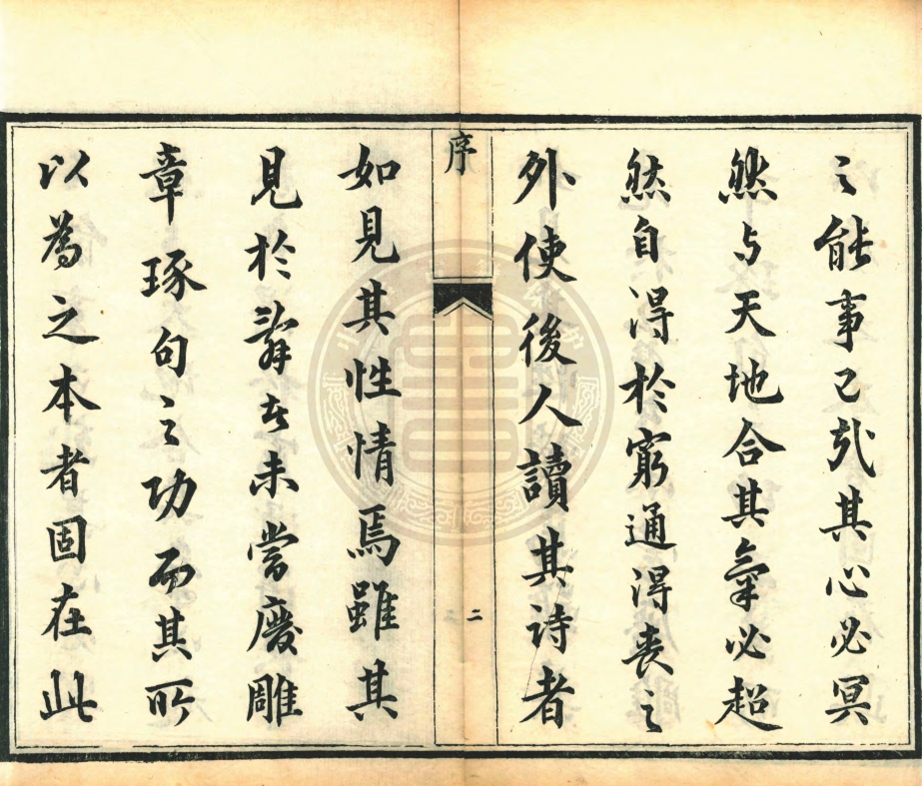 之能事已哉其心必冥
然与天地合其氣必超
然自得於窮通得喪之
外使後人讀其詩者
序
二
如見其性情焉雖其
見於辭者未嘗廢雕
章琢句之功而其所
以為之本者固在此